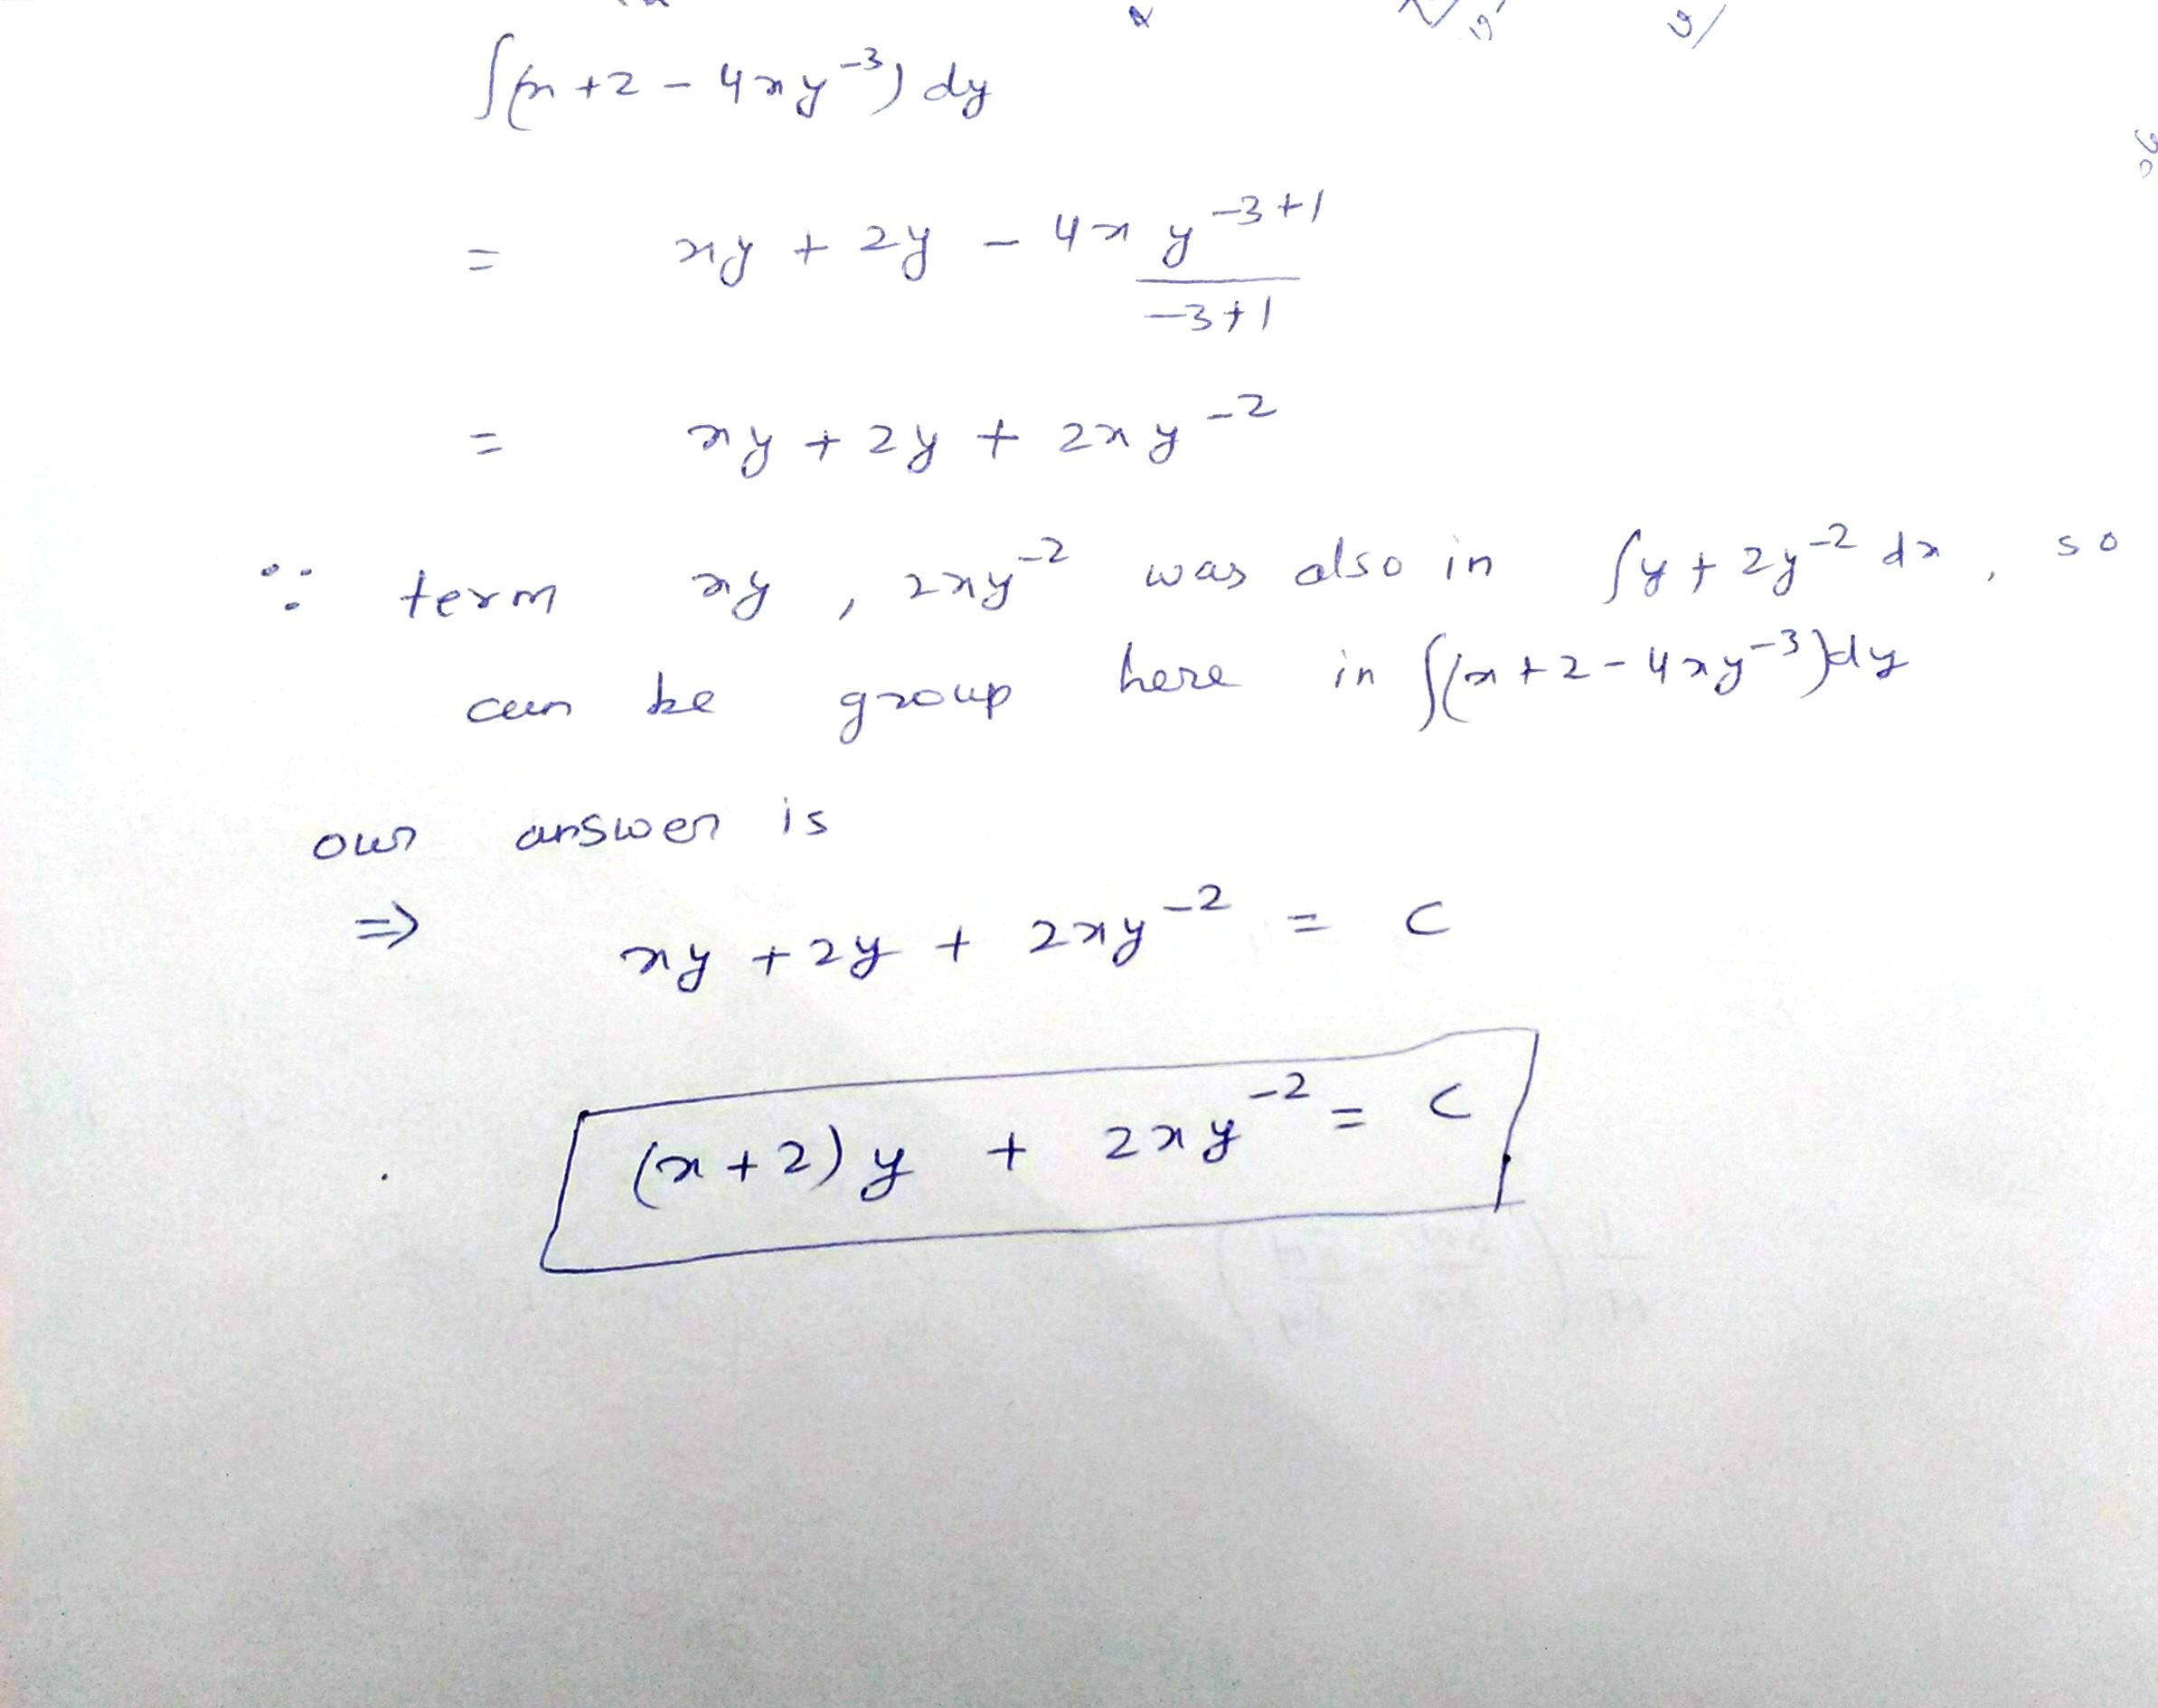 ∫(x+2-4xy⁻³)dy
= xy + 2y - 4x y⁻³⁺¹/(-3+1)
= xy + 2y + 2xy⁻²
∵ term xy, 2xy⁻² was also in ∫y+2y⁻² dx, so
can be group here in ∫(x+2-4xy⁻³)dy
our answer is
⇒ xy + 2y + 2xy⁻² = C
(x+2)y + 2xy⁻² = C